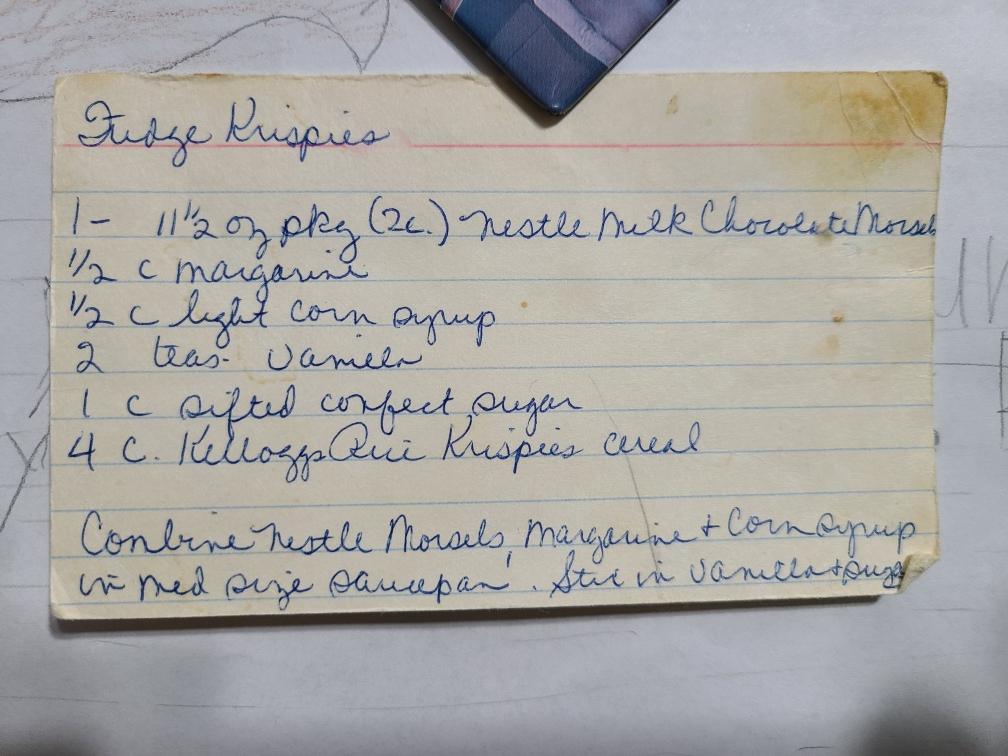 Fudge Krispies
1 - 11 1/2 oz pkg (2c.) Nestle Milk Chocolate Morsels
1/2 c margarine
1/2 c light corn syrup
2 teas. vanilla
1 c sifted confect sugar
4 C. Kelloggs Rice Krispies cereal
Combine Nestle Morsels, Margarine + Corn syrup
in med size saucepan. Stir in vanilla + sugar